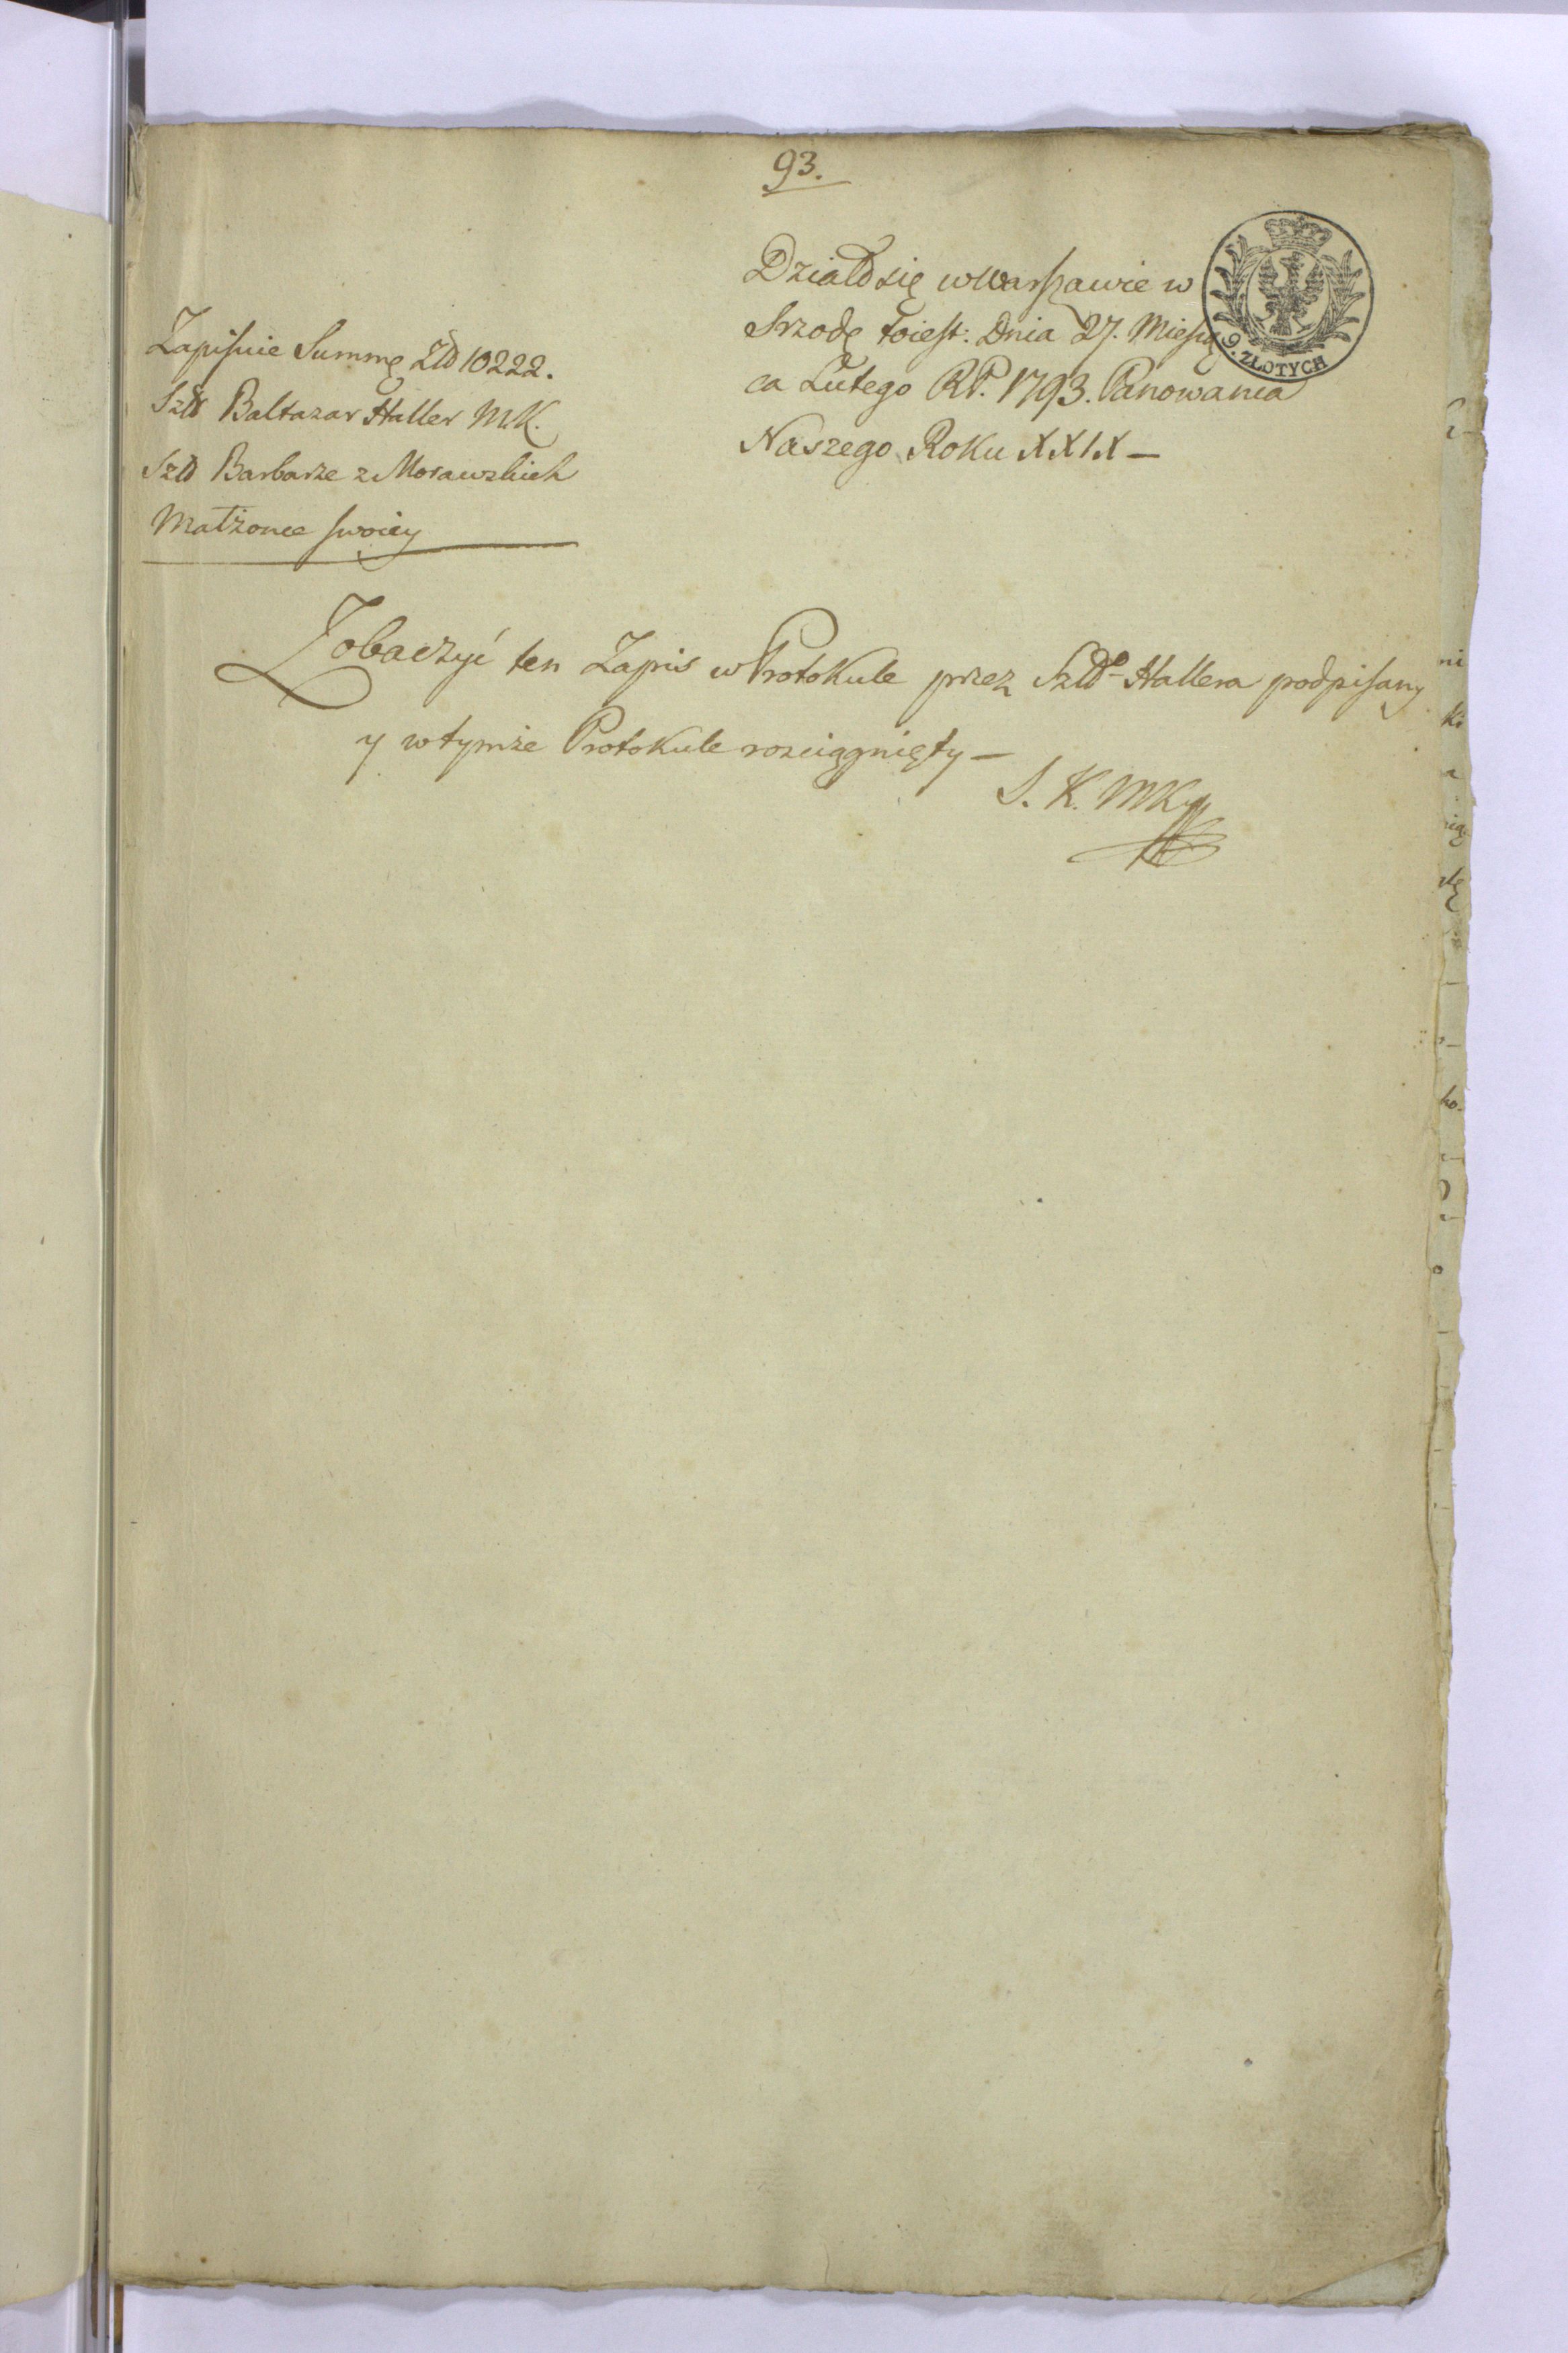 93.
Działo się w Warszawie w
Srzodę toiest: Dnia 27. Miesią
ca Lutego RP. 1793. Panowania
Naszego Roku XXIX —
9. ZŁOTYCH
Zapisuie Summę Złł 10222.
Szltt Baltazar Haller M.K.
Szltt Barbarze z Morawskich
Małżonce swoiey
Zobaczyć ten Zapis w Protokule przez Hallera podpisany
y wtymże Protokule rosciągnięty —
S. K. MK